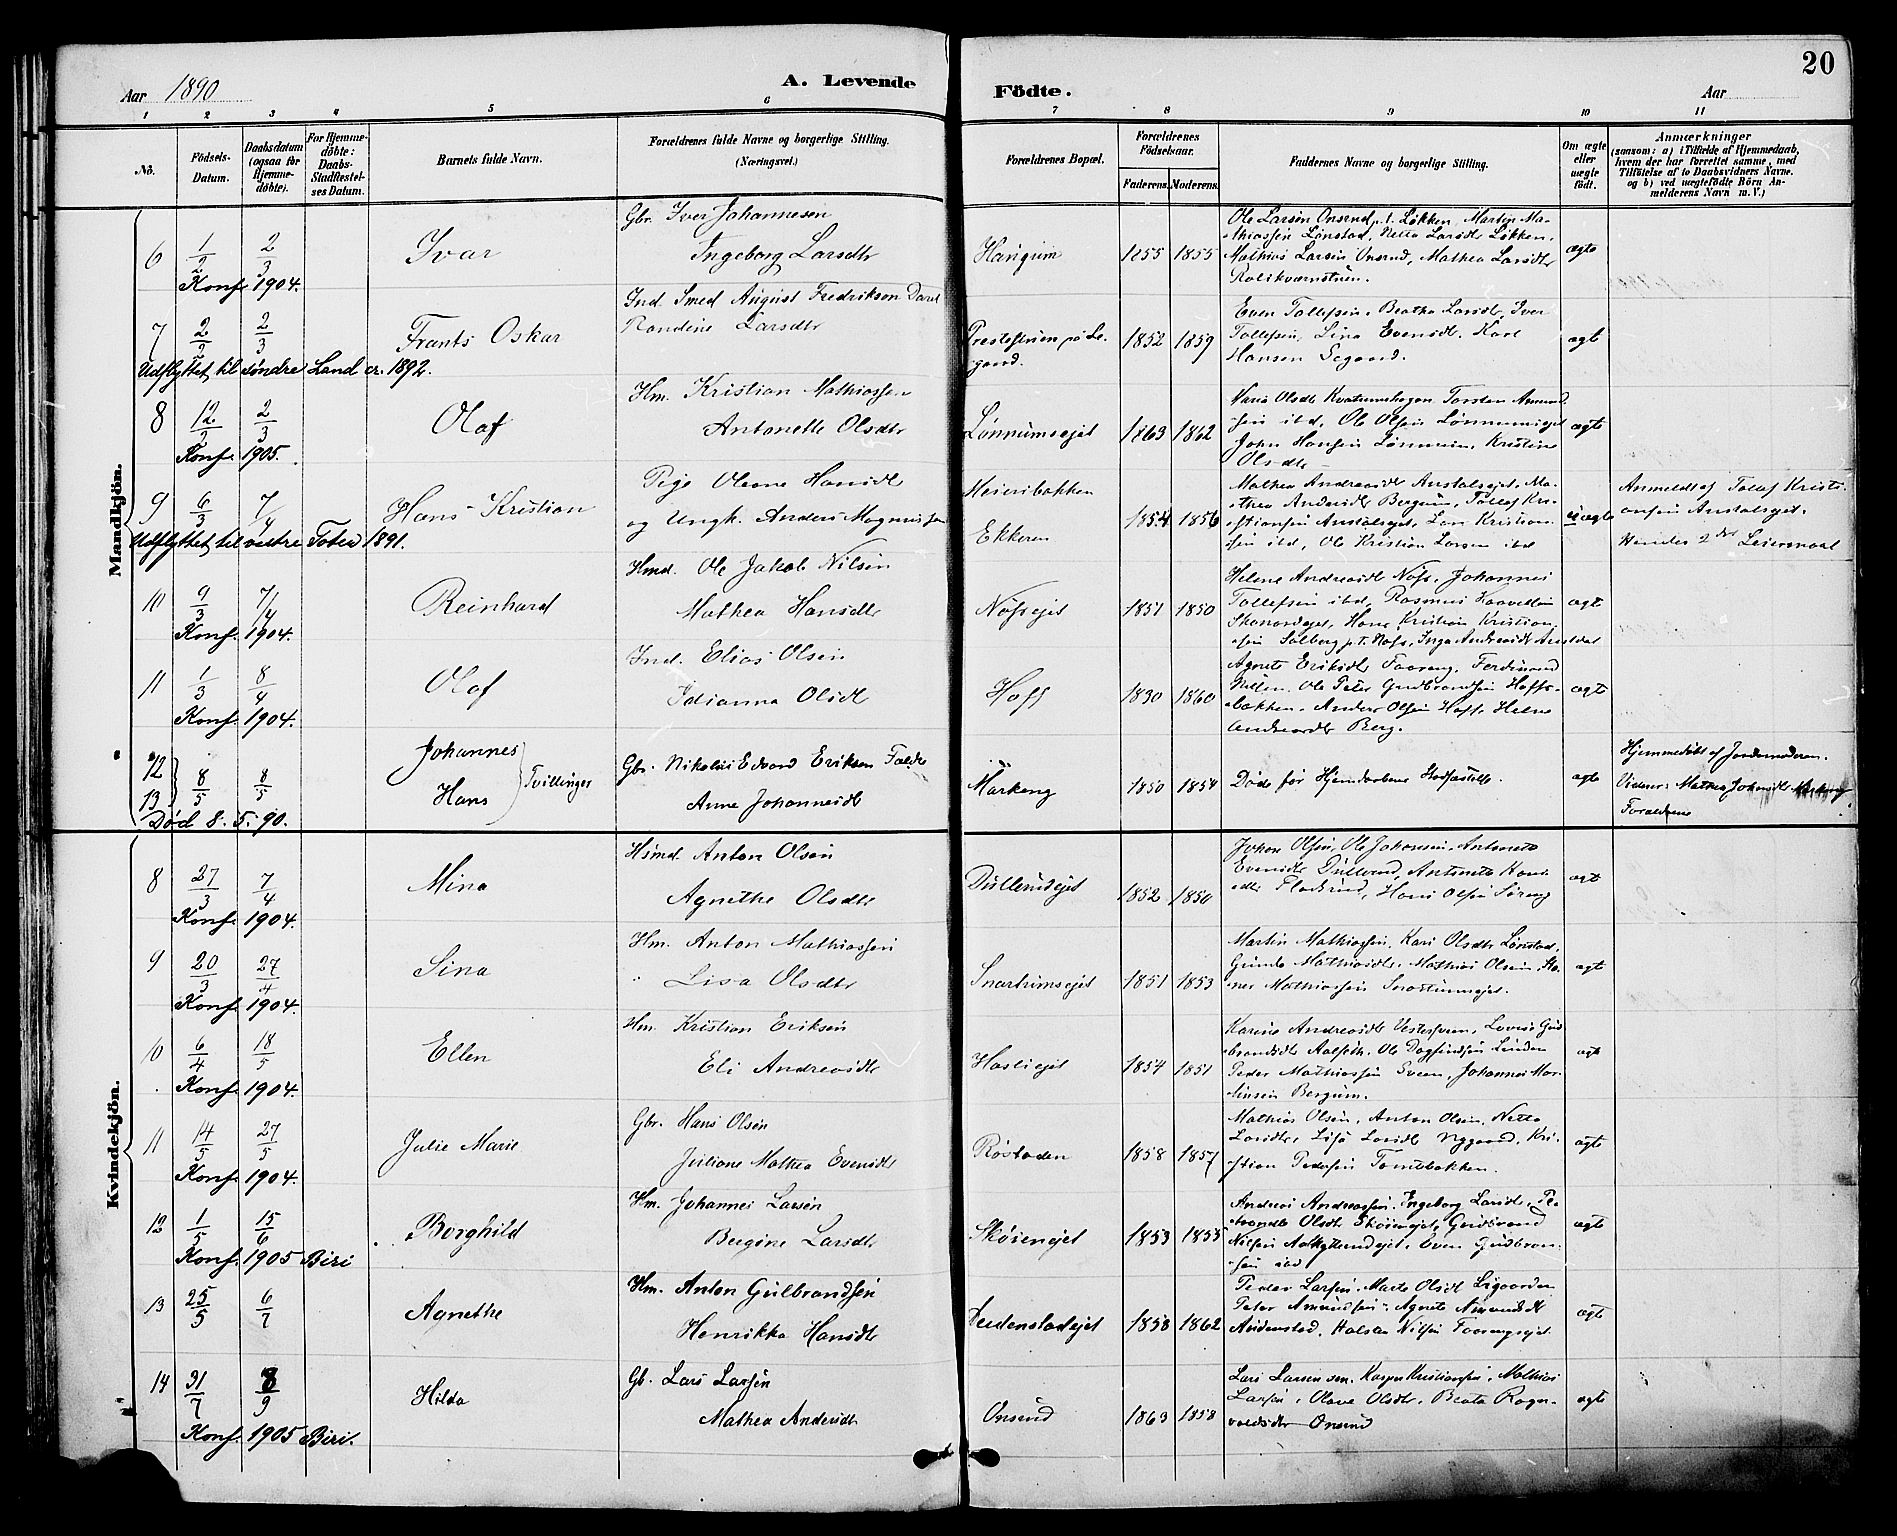 20
Aar 1890
A. Levende
Födte.
Aar
1 2 3 4 5 6 7 8 9 10 11
No.
Födsels-Datum.
Daabsdatum (ogsaa for Hjemme-döbte).
For Hjemme-döbte: Daabs-Stadfæstel-ses Datum.
Barnets fulde Navn.
Forældrenes fulde Navne og borgerlige Stilling.
(Næringsvei.)
Forældrenes Bopæl.
Forældrenes Födselsaar.
Faderens. Moderens.
Faddernes Navne og borgerlige Stilling.
Om ægte eller uægte födt.
Anmærkninger
(saasom: a) i Tilfælde af Hjemmedaab, hvem der har forrettet samme, med Tilföielse af to Daabsvidners Navne. og b) ved uægtefödte Börn An-melderens Navn m. V.)
Mandkjön.
6 1/2 2/3 Ivar
Gbr. Iver Johannesen
Ingeborg Larsdtr
Haugum 1855 1855
Ole Larsen Onsrud p.t. Løkken, Martin Ma-
thiassen Lønstad, Netta Larsdtr Løkken,
Mathias Larsen Onsrud, Mathea Larsdtr
ægte
Konf. 1904.
7 2/2 2/3 Frants Oskar
Ind. Smed August Fredriksen
Randine Larsdtr
1852 1859
Even Tollefsen, Beatha Larsdt, Iver
Tollefsen, Lina Evensdt. Karl
Hansen Segaard.
ægt
Udflyttet til søndre Land cr. 1892.
8 12/2 2/3 Olaf
Hm. Kristian Mathiassen
Antonette Olsdtr
Lønnumsejet 1863 1862
Maria Olsdt Torsten Amund
sen ibd, Ole Olsen Lønnumsejet
John Hansen Lønnum, Kristine
Olsdtr
ægte
Konf. 1905.
9 6/3 7/4 Hans Kristian
Pige Oleane Hansdt
og Ungk. Anders Magnussen
Meieribakken
Ekkeren 1854 1856
Mathea Andreasdt Anstalsejet, Ma-
thea Andersdt Bergum, Tollef Kri-
stiansen Anstalsejet, Lars Kristian
sen ibd, Ole Kristian Larsen ibd
uægte
Anmeldt af Tollef Kristi-
ansen Anstalsejet.
Hendes 2det Leiermaal
Udflyttet til vestre Toten 1891.
10 9/3 7/4 Reinhard
Hmd. Ole Jakob Nilsen
Mathea Hansdtr
Nøssejet 1851 1850
Helene Andreasdt Nøss, Johannes
Tollefsen ibd, Rasmus
Hans Kristian Kristian
sen Solberg p.t. Nøss, Inga Andreasdt
ægt
Konf. 1904.
11 1/3 8/4 Olaf
Ind. Elias Olsen
Idianna Olsdt
Hoff 1830 1860
Agnete Eriksdt Faareng, Ferdinand
Nilsen, Ole Peter Gudbrandsen Hoffs-
bakken, Anders Olsen Hoff, Helene
Andreasdt Berg.
ægte
Konf. 1904.
12 13 8/5 8/5 Johannes
Hans
Tvillinger
Gbr. Nikolai Edvard Eriksen Falde
Anne Johannesdt
Markeng 1850 1854
Døde før Hjemdaabens Stadfæstelse
ægte
Hjemmedøbt af Jordemoderen.
Vidner: Mathea Johansdt
Forældrene
Død 8. 5. 90.
Kvindekjön.
8 27/3 7/4 Mina
Hsmd. Anton Olsen
Agnethe Olsdtr
Dullerudejet 1852 1850
Johan Olsen, Ole Johansen, Antonete
Evensdtr Dullerud, Antonete Hans
dtr Hans Olsen Søreng
ægt
Konf. 1904.
9 20/3 27/4 Sina
Hm. Anton Mathiassen
Lisa Olsdtr
Snartumsejet 1851 1853
Martin Mathiassen, Kari Olsdtr Lønstad,
Gunda Mathiasdtr, Mathias Olsen,
Mathiassen Snartumsejet.
ægte
Konf. 1904.
10 6/4 18/5 Ellen
Hm. Kristian Eriksen
Eli Andreasdtr
Hasliejet 1854 1851
Karine Andreasdt Lovise Gud
brandsdtr Aalseth, Ole Dagfindsen Linden
Peder Mathiassen Sveen, Johannes Mar-
tinsen Bergum.
ægt
Konf. 1904.
11 14/5 27/5 Julie Marie
Gbr. Hans Olsen
Juliane Mathea Evensdtr
Røstaden 1858 1857
Mathias Olsen, Anton Olsen, Netta
Larsdtr, Lisa Larsdt Nygaard, Kri-
stian Pedersen Tomtbakken.
ægte
Konf. 1904.
12 1/5 15/6 Borghild
Hm. Johannes Larsen
Bergine Larsdtr
Skøienejet 1853 1855
Andreas Andreassen, Ingeborg Larsdt,
Olsdt Skøienejet, Gudbrand
Nilsen Even Gudbran-
sen ibd
ægte
Konf. 1905 Biri
13 25/5 6/7 Agnethe
Hm. Anton Gulbrandsen
Henrikka Hansdtr
1858 1862
Peder Larsen, Marte Olsdt Ligaarden
Peter Amundsen, Agnete Amundsdt
Audenstad, Halsten Nilsen Faarengsejet
ægte
14 31/7 8/9 Hilda
Gb. Lars Larsen
Mathea Andersdt
Onsrud 1863 1858
Lars Larsen sen. Kasper Kristiansen, Mathias
Larsen, Olave Olsdtr, Beata Ragn-
valdsdtr Onsrud
ægte
Konf. 1905 Biri.